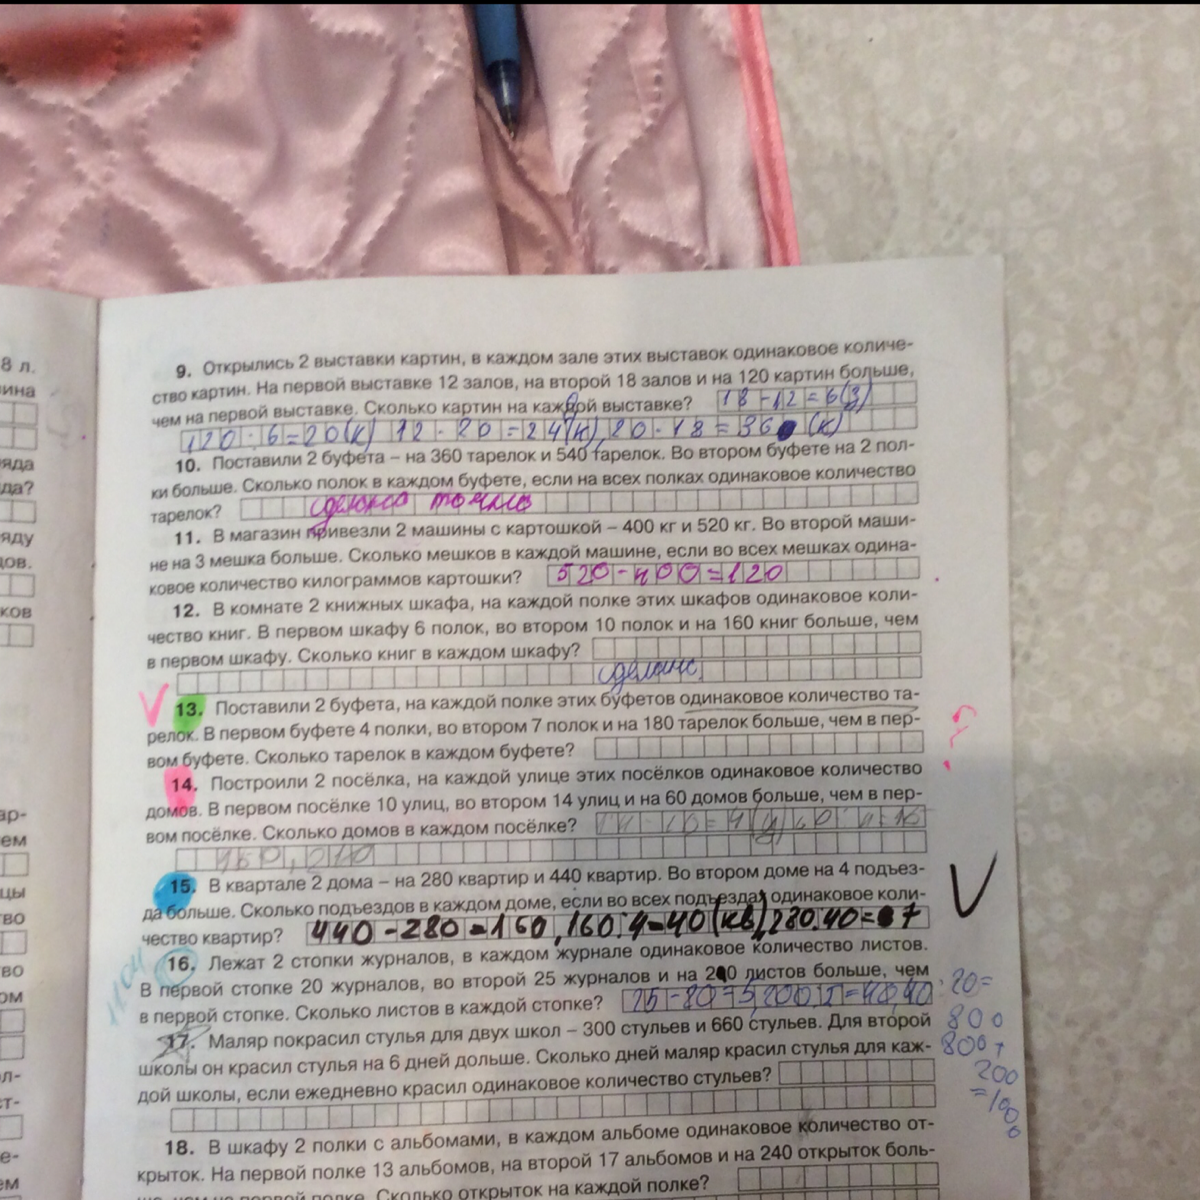 9. Открылись 2 выставки картин, в каждом зале этих выставок одинаковое количе-
ство картин. На первой выставке 12 залов, на второй 18 залов и на 120 картин больше,
чем на первой выставке. Сколько картин на каждой выставке? 18-12=6(з)
120:6=20(к) 12·20=24(к), 20·18=360(к)
10. Поставили 2 буфета – на 360 тарелок и 540 тарелок. Во втором буфете на 2 пол-
ки больше. Сколько полок в каждом буфете, если на всех полках одинаковое количество
тарелок?
11. В магазин привезли 2 машины с картошкой – 400 кг и 520 кг. Во второй маши-
не на 3 мешка больше. Сколько мешков в каждой машине, если во всех мешках одина-
ковое количество килограммов картошки? 520-400=120
12. В комнате 2 книжных шкафа, на каждой полке этих шкафов одинаковое коли-
чество книг. В первом шкафу 6 полок, во втором 10 полок и на 160 книг больше, чем
в первом шкафу. Сколько книг в каждом шкафу?
сделано
13. Поставили 2 буфета, на каждой полке этих буфетов одинаковое количество та-
релок. В первом буфете 4 полки, во втором 7 полок и на 180 тарелок больше, чем в пер-
вом буфете. Сколько тарелок в каждом буфете?
?
14. Построили 2 посёлка, на каждой улице этих посёлков одинаковое количество
домов. В первом посёлке 10 улиц, во втором 14 улиц и на 60 домов больше, чем в пер-
вом посёлке. Сколько домов в каждом посёлке?
15. В квартале 2 дома – на 280 квартир и 440 квартир. Во втором доме на 4 подъез-
да больше. Сколько подъездов в каждом доме, если во всех подъездах одинаковое коли-
чество квартир? 440-280=160, 160:4=40(кв), 280:40=7
16. Лежат 2 стопки журналов, в каждом журнале одинаковое количество листов.
В первой стопке 20 журналов, во второй 25 журналов и на 200 листов больше, чем
в первой стопке. Сколько листов в каждой стопке?
·20=
800
800+
200
17. Маляр покрасил стулья для двух школ – 300 стульев и 660 стульев. Для второй
школы он красил стулья на 6 дней дольше. Сколько дней маляр красил стулья для каж-
дой школы, если ежедневно красил одинаковое количество стульев?
18. В шкафу 2 полки с альбомами, в каждом альбоме одинаковое количество от-
крыток. На первой полке 13 альбомов, на второй 17 альбомов и на 240 открыток боль-
ше, чем на первой полке. Сколько открыток на каждой полке?